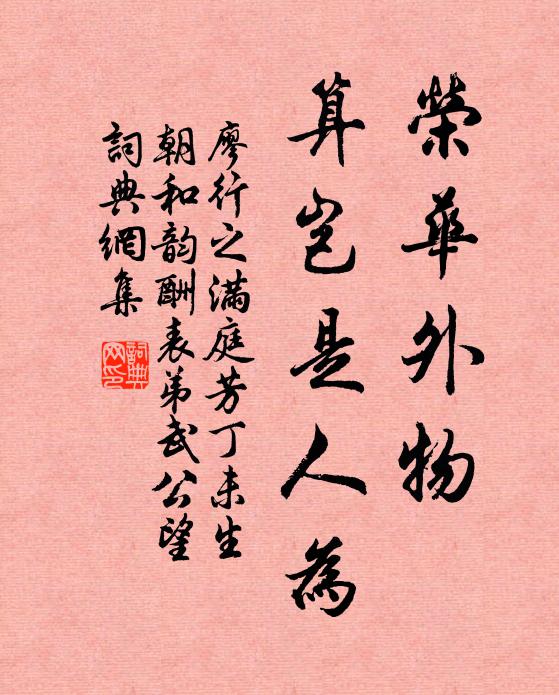 榮華外物
算豈是人為
廖行之滿庭芳丁未生
朝和韵酬表弟武公望
詞典網集
詞典網印